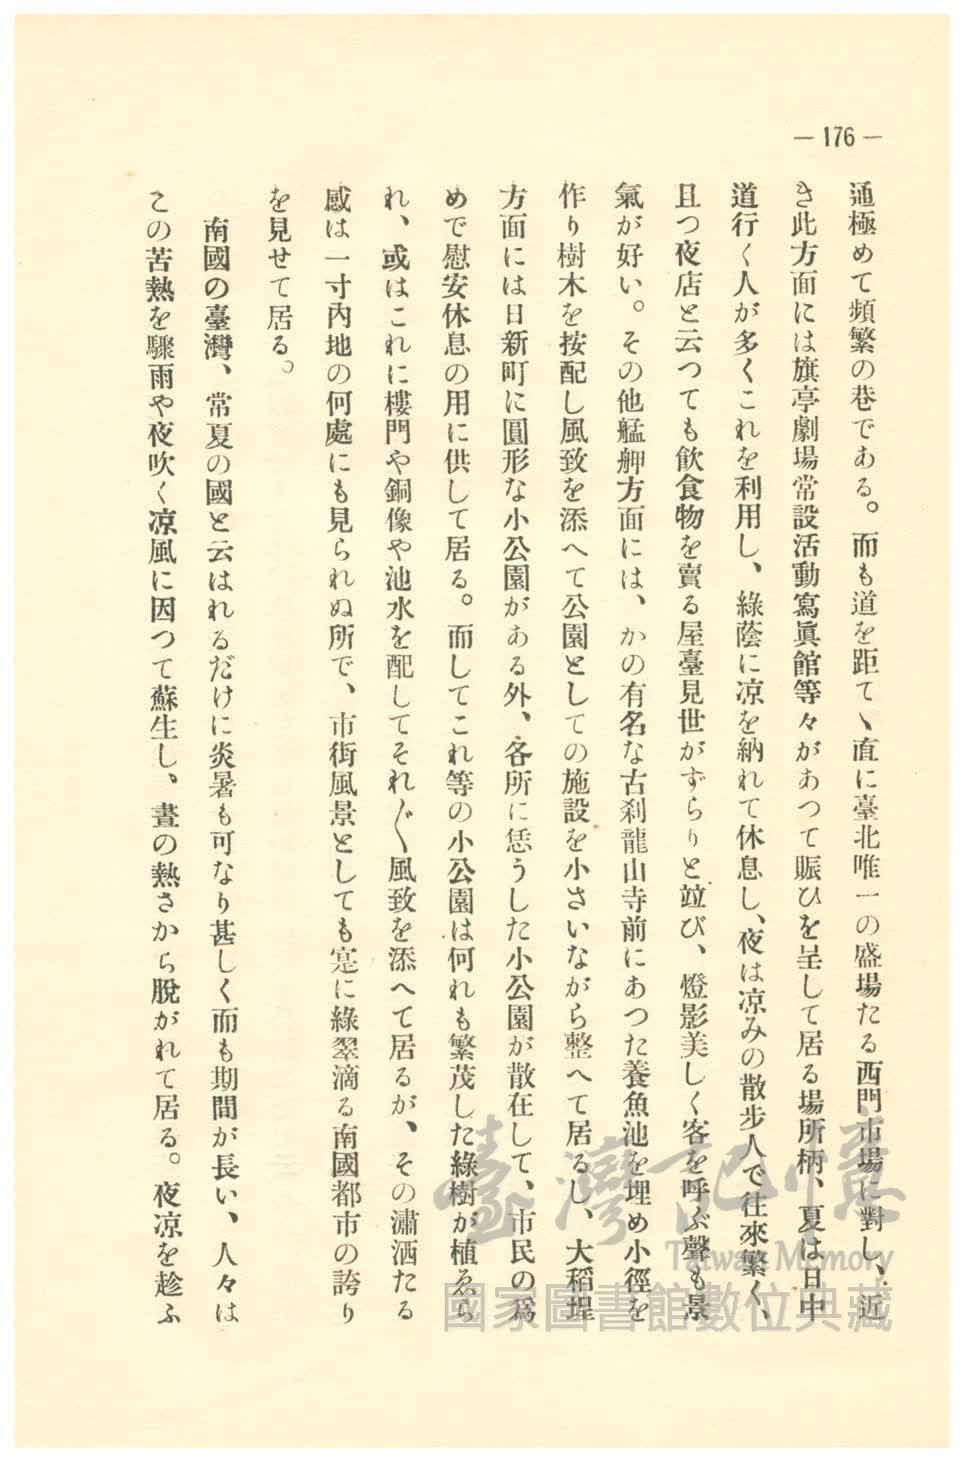 — 176 —
通極めて頻繁の巷である。而も道を距てゝ直に臺北唯一の盛場たる西門市場に對し、近
き此方面には旗亭劇場常設活動寫眞館等々があつて賑ひを呈して居る場所柄、夏は日中
道行く人が多くこれを利用し、綠蔭に凉を納れて休息し、夜は凉みの散步人で往來繁く、
且つ夜店と云つても飮食物を賣る屋臺見世がずらりと竝び、燈影美しく客を呼ぶ聲も景
氣が好い。その他艋舺方面には、かの有名な古刹龍山寺前にあつた養魚池を埋め小徑を
作り樹木を按配し風致を添へて公園としての施設を小さいながら整へて居るし、大稻埕
方面には日新町に圓形な小公園がある外、各所に恁うした小公園が散在して、市民の爲
めで慰安休息の用に供して居る。而してこれ等の小公園は何れも繁茂した綠樹が植ゑら
れ、或はこれに樓門や銅像や池水を配してそれ〴〵風致を添へて居るが、その瀟洒たる
感は一寸內地の何處にも見られぬ所で、市街風景としても寔に綠翠滴る南國都市の誇り
を見せて居る。
南國の臺灣、常夏の國と云はれるだけに炎暑も可なり甚しく而も期間が長い、人々は
この苦熱を驟雨や夜吹く凉風に因つて蘇生し、晝の熱さから脫がれて居る。夜凉を趁ふ
臺灣記憶
Taiwan Memory
國家圖書館數位典藏